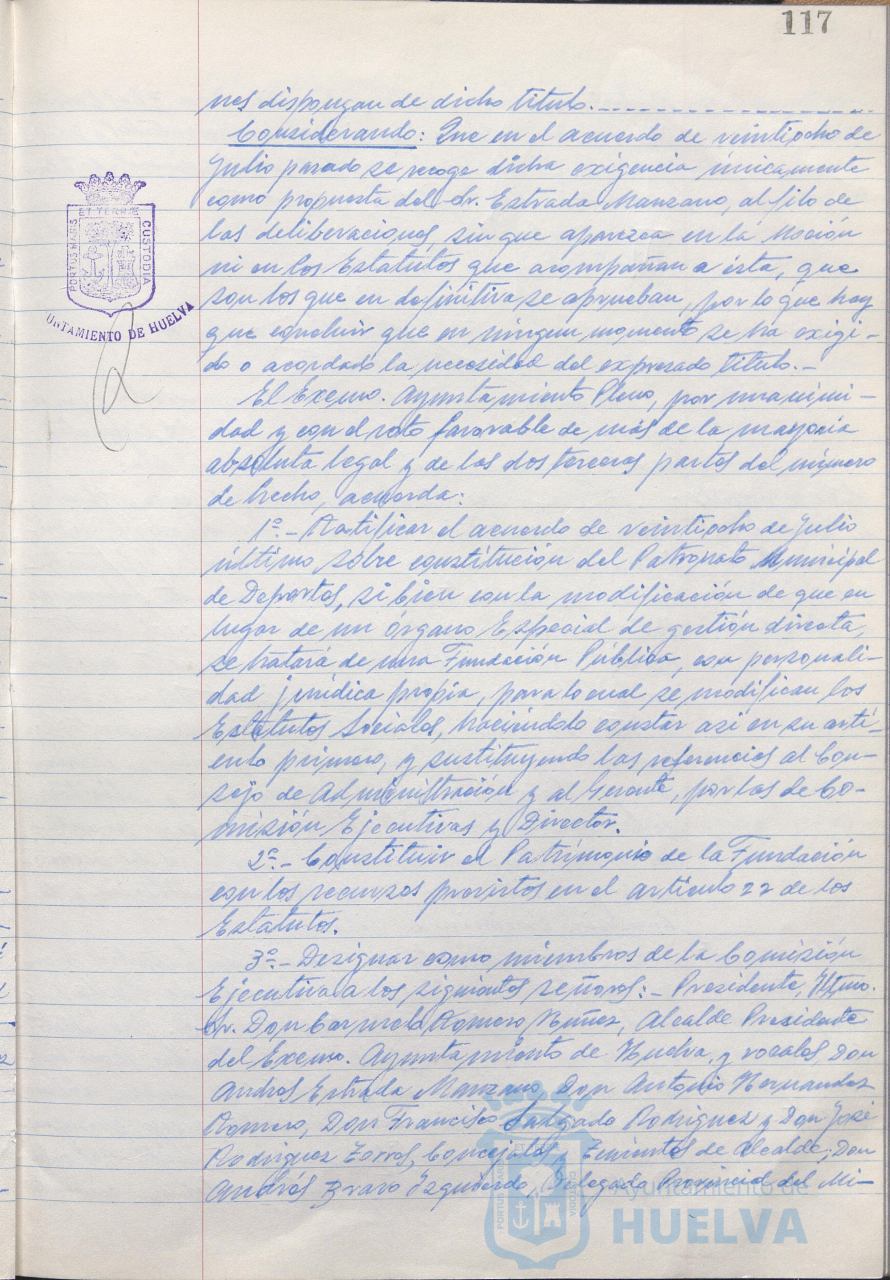 117
nes dispongan de dicho título.
Considerando: Que en el acuerdo de veintiocho de
Julio pasado se recoge dicha exigencia únicamente
como propuesta del Sr. Estrada Manzano, al filo de
las deliberaciones, sin que aparezca en la Moción
ni en los Estatutos que acompañan a ésta, que
son los que en definitiva se aprueban, por lo que hay
que concluir que en ningun momento se ha exigi-
do o acordado la necesidad del expresado título.-
El Excmo. Ayuntamiento Pleno, por unanimi-
dad y con el voto favorable de más de la mayoría
absoluta legal y de las dos terceras partes del número
de hecho, acuerda:
1º.- Ratificar el acuerdo de veintiocho de Julio
último sobre constitución del Patronato Municipal
de Deportes, si bien con la modificación de que en
lugar de un Órgano Especial de gestión directa,
se tratará de una Fundación Pública, con personali-
dad jurídica propia, para lo cual se modifican los
Estatutos Sociales, haciéndolo constar así en su artí-
culo primero, y sustituyendo las referencias al Con-
sejo de Administración y al Gerente, por las de Co-
misión Ejecutivas y Director.
2º.- Constituir el Patrimonio de la Fundación
con los recursos previstos en el artículo 22 de los
Estatutos.
3º.- Designar como miembros de la Comisión
Ejecutiva a los siguientes señores:- Presidente, Iltmo.
Sr. Don Carmelo Romero Núñez, Alcalde Presidente
del Excmo. Ayuntamiento de Huelva, y vocales, Don
Andres Estrada Manzano, Don Antonio Hernandez
Romero, Don Francisco Salgado Rodriguez y Don José
Rodriguez Torres, Concejales, Tenientes de Alcalde; Don
Andrés Bravo Izquierdo, Delegado Provincial del Mi-
PORTUS MARIS ET TERRÆ CUSTODIA
UNTAMIENTO DE HUELVA
Ayuntamiento de
HUELVA